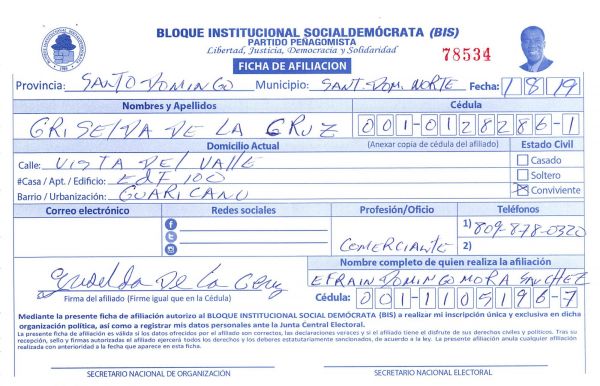 BLOQUE INSTITUCIONAL SOCIALDEMÓCRATA (BIS)
PARTIDO PEÑAGOMISTA
Libertad, Justicia, Democracia y Solidaridad
78534
FICHA DE AFILIACION
Provincia: SANTO DOMINGO Municipio: SANT. DOM. NORTE Fecha: 1/8/19
Nombres y Apellidos Cédula
GRISELDA DE LA CRUZ 001-0128286-1
Domicilio Actual (Anexar copia de cédula del afiliado) Estado Civil
Calle: VISTA DEL VALLE Casado
#Casa / Apt. / Edificio: EDF 100 Soltero
Barrio / Urbanización: GUARICANO Conviviente
Correo electrónico Redes sociales Profesión/Oficio Teléfonos
1) 809-878-0320
COMERCIANTE 2)
Nombre completo de quien realiza la afiliación
Griselda De La Cruz EFRAIN DOMINGO MORA SANCHEZ
Firma del afiliado (Firme igual que en la Cédula) Cédula: 001-1105196-7
Mediante la presente ficha de afiliación autorizo al BLOQUE INSTITUCIONAL SOCIAL DEMÓCRATA (BIS) a realizar mi inscripción única y exclusiva en dicha
organización política, así como a registrar mis datos personales ante la Junta Central Electoral.
La presente ficha de afiliación es válida si los datos ofrecidos por el afiliado son correctos, las declaraciones veraces y si el afiliado tiene el disfrute de sus derechos civiles y políticos. Tras su
recepción, sello y firmas autorizadas el afiliado ejercerá todos los derechos y los deberes estatutariamente sancionados, de acuerdo a la ley. La presente afiliación anula cualquier afiliación
realizada con anterioridad a la fecha que aparece en esta ficha.
SECRETARIO NACIONAL DE ORGANIZACIÓN SECRETARIO NACIONAL ELECTORAL